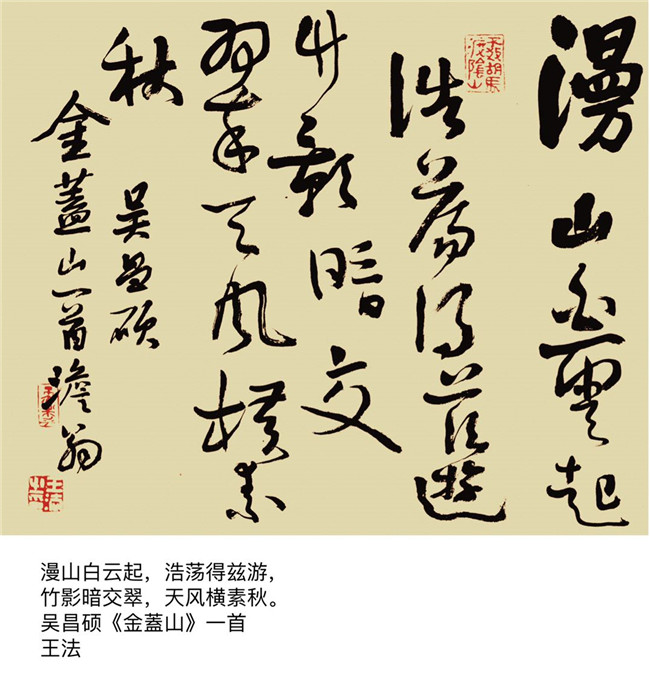 漫山白雲起
浩蕩得茲遊
竹影暗交
翠天風橫素
秋
吴昌碩
金蓋山一首澹翁
漫山白云起，浩荡得兹游，
竹影暗交翠，天风横素秋。
吴昌硕《金蓋山》一首
王法